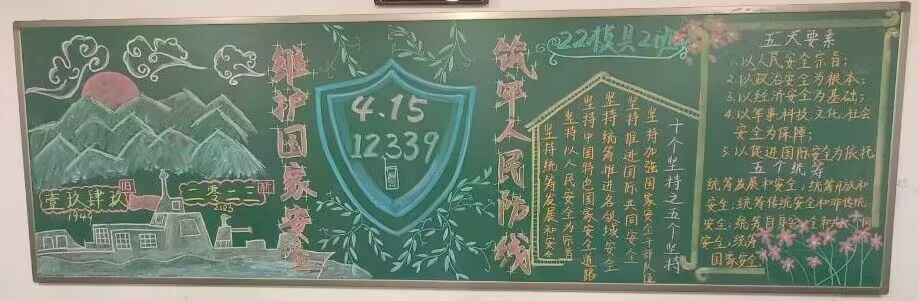 维护国家安全
筑牢人民防线
4.15
12339
壹玖肆玖
旧
1949
二零二三
新
2023
22模具2班
十个坚持之五个坚持
坚持加强国家安全干部队伍
坚持推进国际共同安全
坚持统筹推进各领域安全
坚持中国特色国家安全道路
坚持以人民安全为宗旨
坚持统筹发展和安全
五大要素
1.以人民安全宗旨;
2.以政治安全为根本;
3.以经济安全为基础;
4.以军事科技文化社会
安全为保障;
5.以促进国际安全为依托
五个统筹
统筹发展和安全,统筹开放和
安全,统筹传统安全和非传统
安全,统筹自身安全和共同
安全,统筹
国家安全